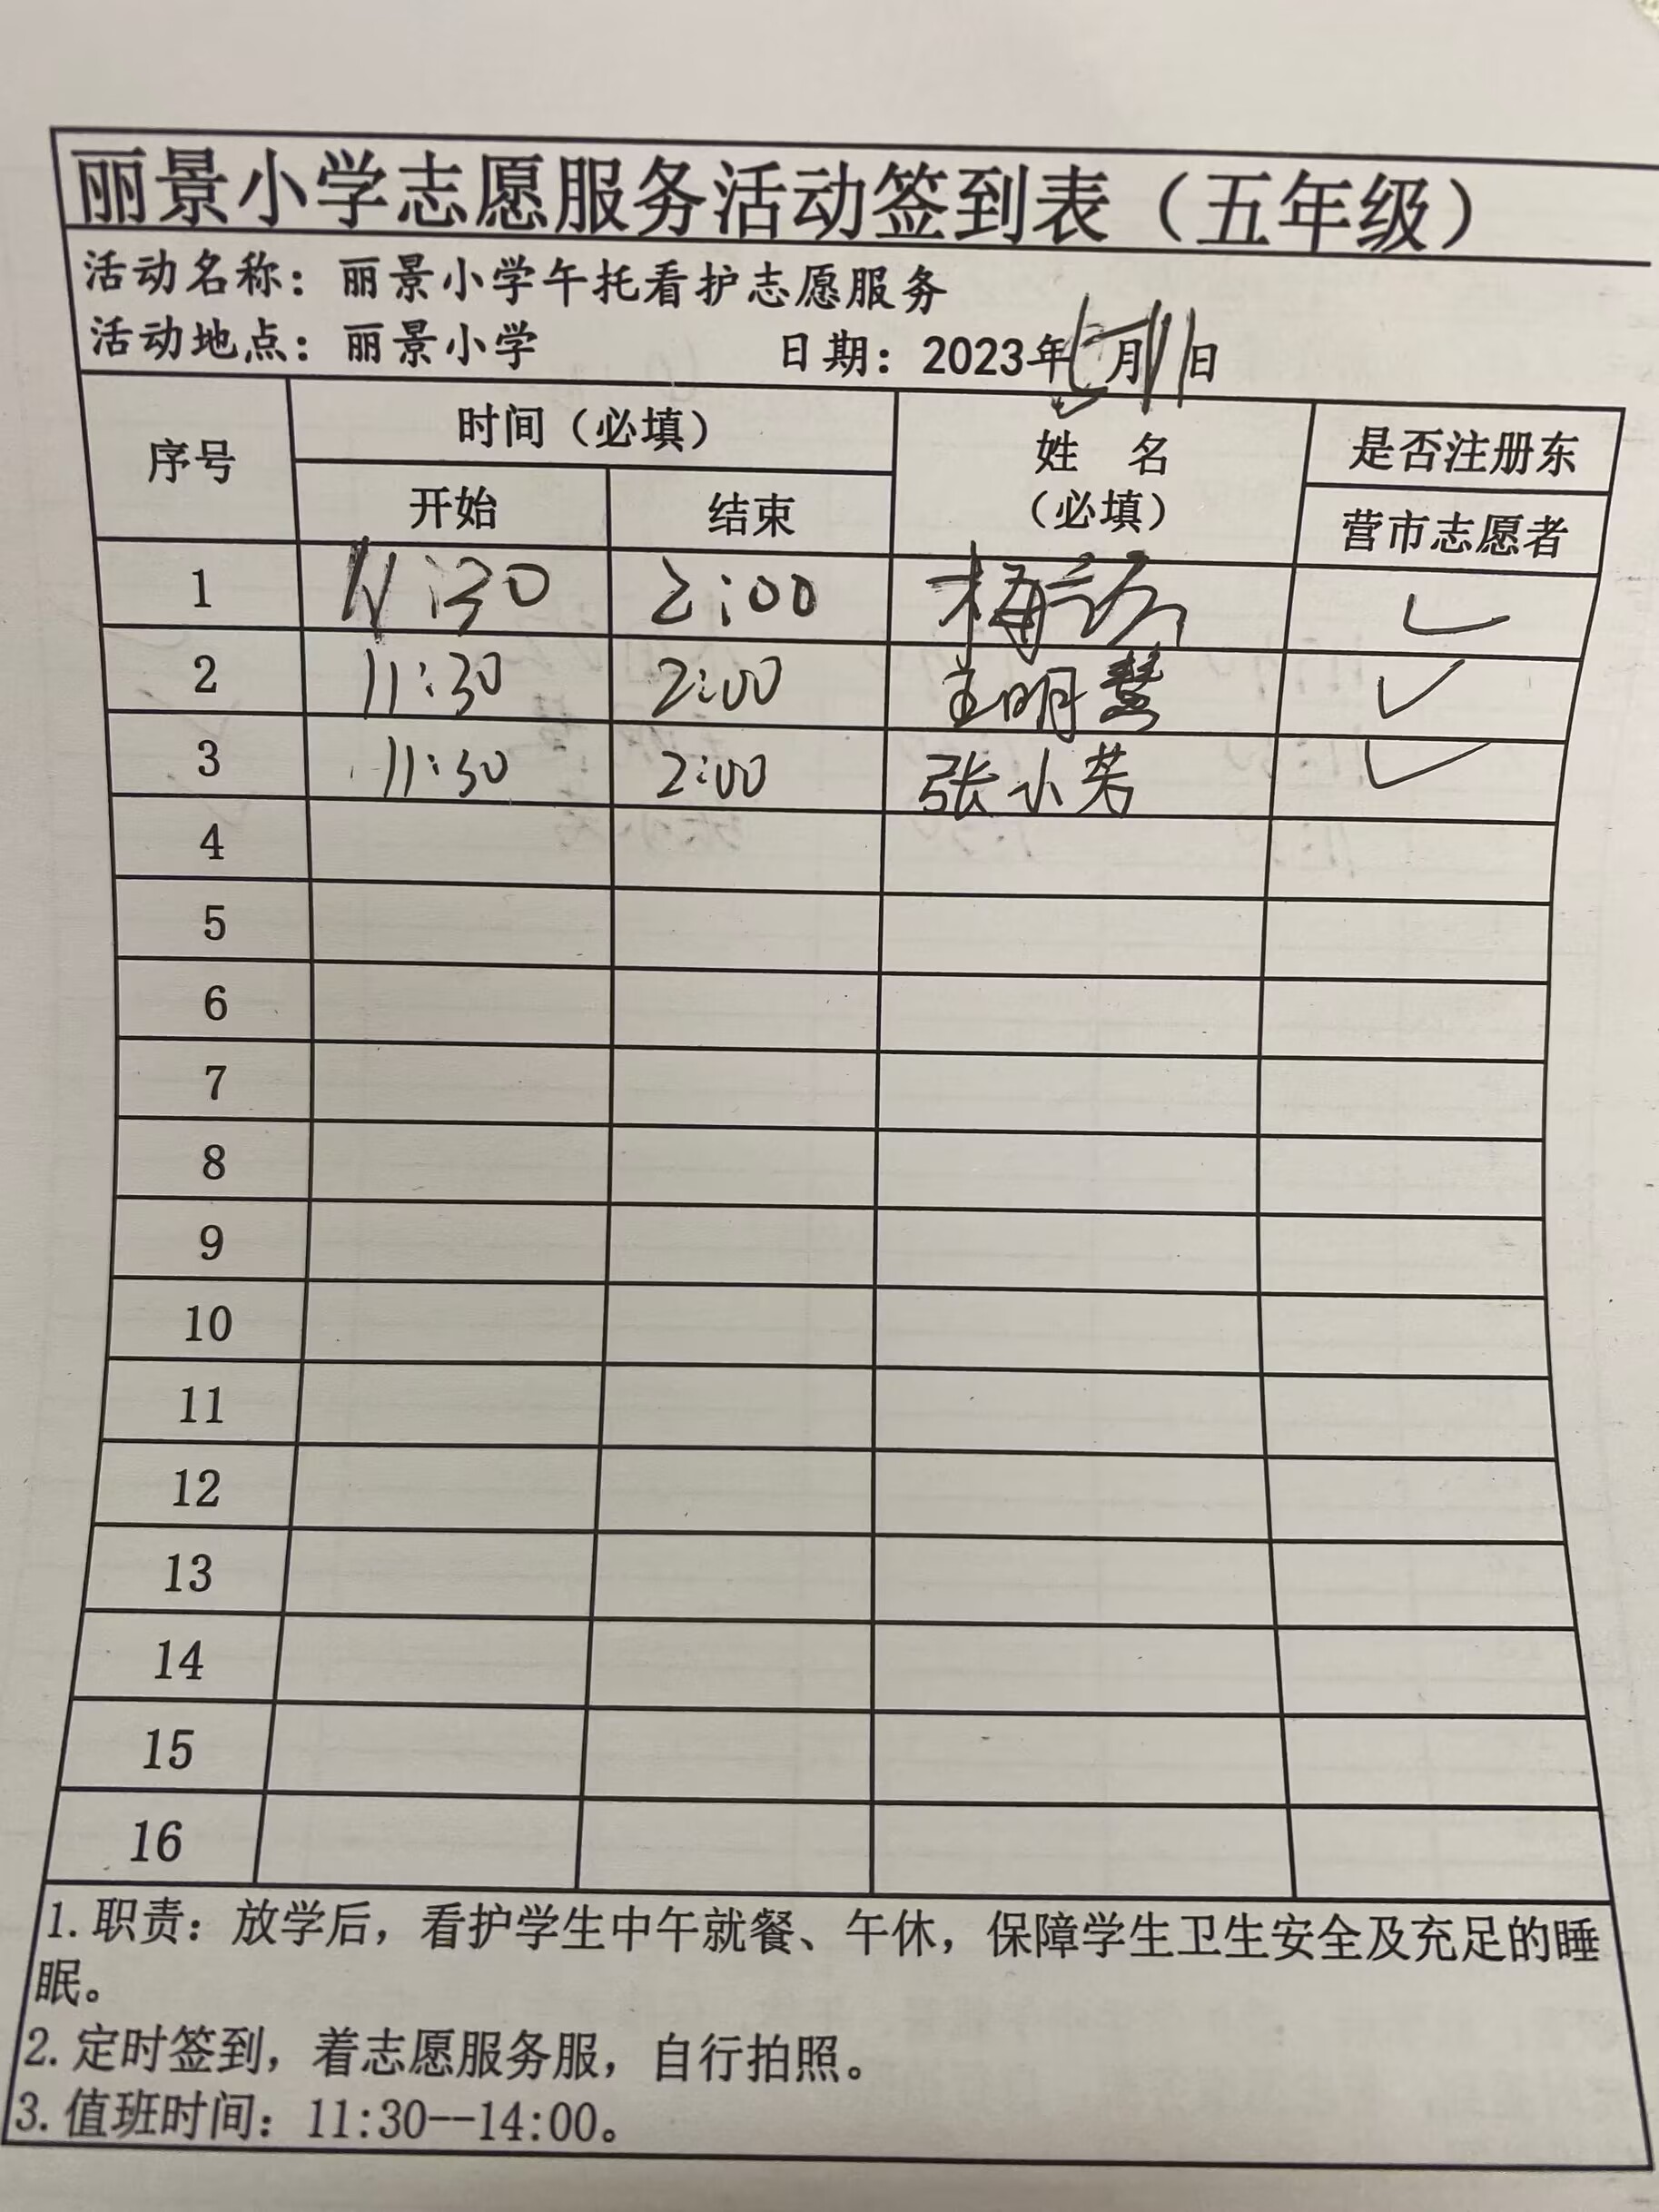 丽景小学志愿服务活动签到表（五年级）
活动名称：丽景小学午托看护志愿服务
活动地点：丽景小学 日期：2023年5月11日
序号 时间（必填） 姓 名 （必填） 是否注册东
开始 结束 营市志愿者
1 11:30 2:00 ✓
2 11:30 2:00 王明慧 ✓
3 11:30 2:00 张小芳 ✓
4
5
6
7
8
9
10
11
12
13
14
15
16
1.职责：放学后，看护学生中午就餐、午休，保障学生卫生安全及充足的睡
眠。
2.定时签到，着志愿服务服，自行拍照。
3.值班时间：11:30--14:00。